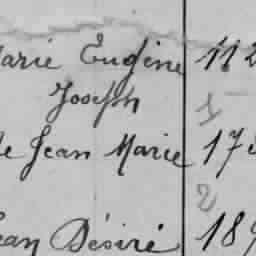 arie Eugène 112
Joseph 1
e Jean Marie 17
2
ean Désiré 189